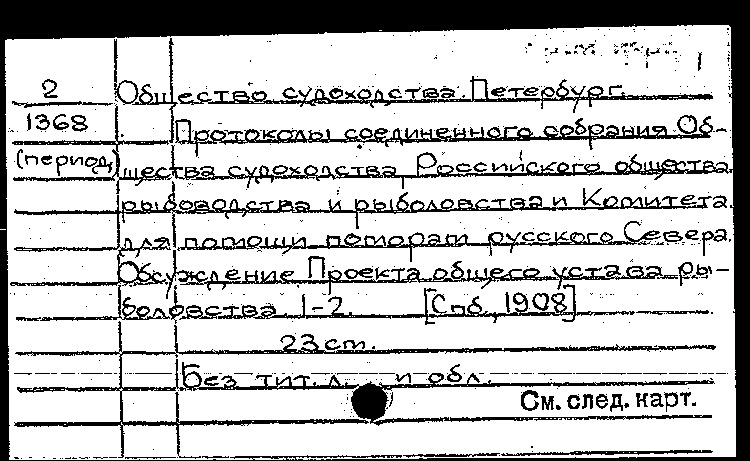 2 Общество судоходства. Петербург.
1368 Протоколы соединенного собрания Об-
(период.) щества судоходства, Российского общества
рыбоводства и рыболовства и Комитета
для помощи поморам русского Севера.
Обсуждение Проекта общего устава ры-
боловства 1-2. [Спб., 1908]
23 ст.
Без тит. л. и обл.
См. след. карт.